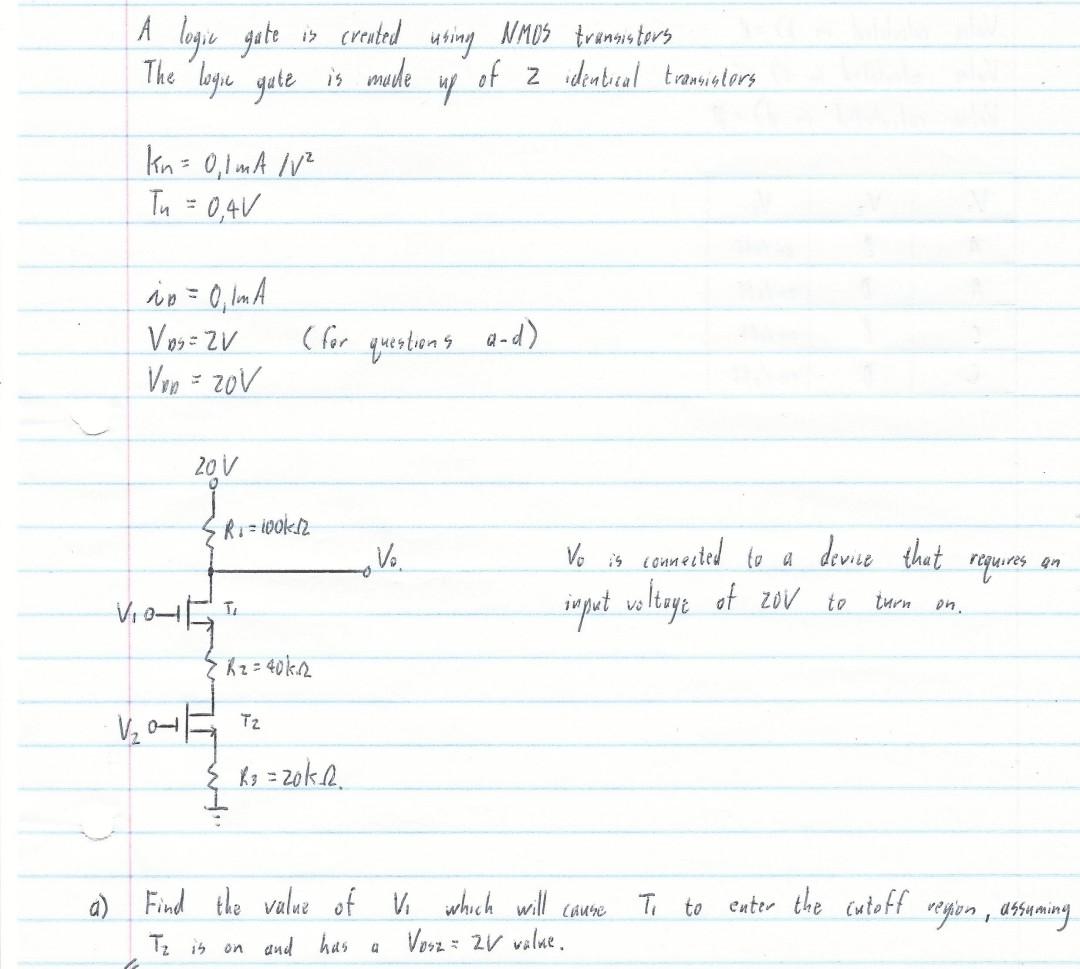 A logic gate is created using NMOS transistors
The logic gate is made up of 2 identical transistors
kn = 0,1mA /V²
Tn = 0,4V
iD = 0,1mA
VDS = 2V (for questions a-d)
VDD = 20V
20V
R1 = 100kΩ
Vo.
Vo is connected to a device that requires an
input voltage of 20V to turn on.
V1
T1
R2 = 40kΩ
V2
T2
R3 = 20kΩ.
a) Find the value of V1 which will cause T1 to enter the cutoff region, assuming
T2 is on and has a VDS2 = 2V value.